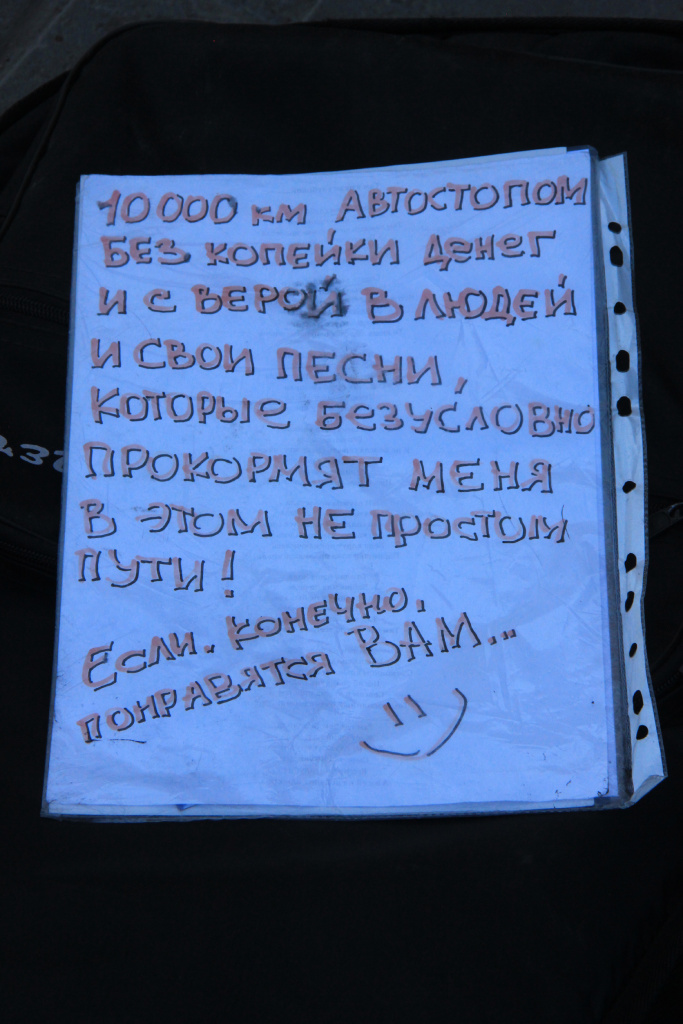 10 000 км АВТОСТОПОМ
БЕЗ КОПЕЙКИ денег
и с ВЕРОЙ В ЛЮДЕЙ
и СВОИ ПЕСНИ,
КОТОРЫЕ БЕЗУСЛОВНО
ПРОКОРМЯТ МЕНЯ
В ЭТОМ НЕ ПРОСТОМ
ПУТИ!
Если. конечно.
понравятся ВАМ...